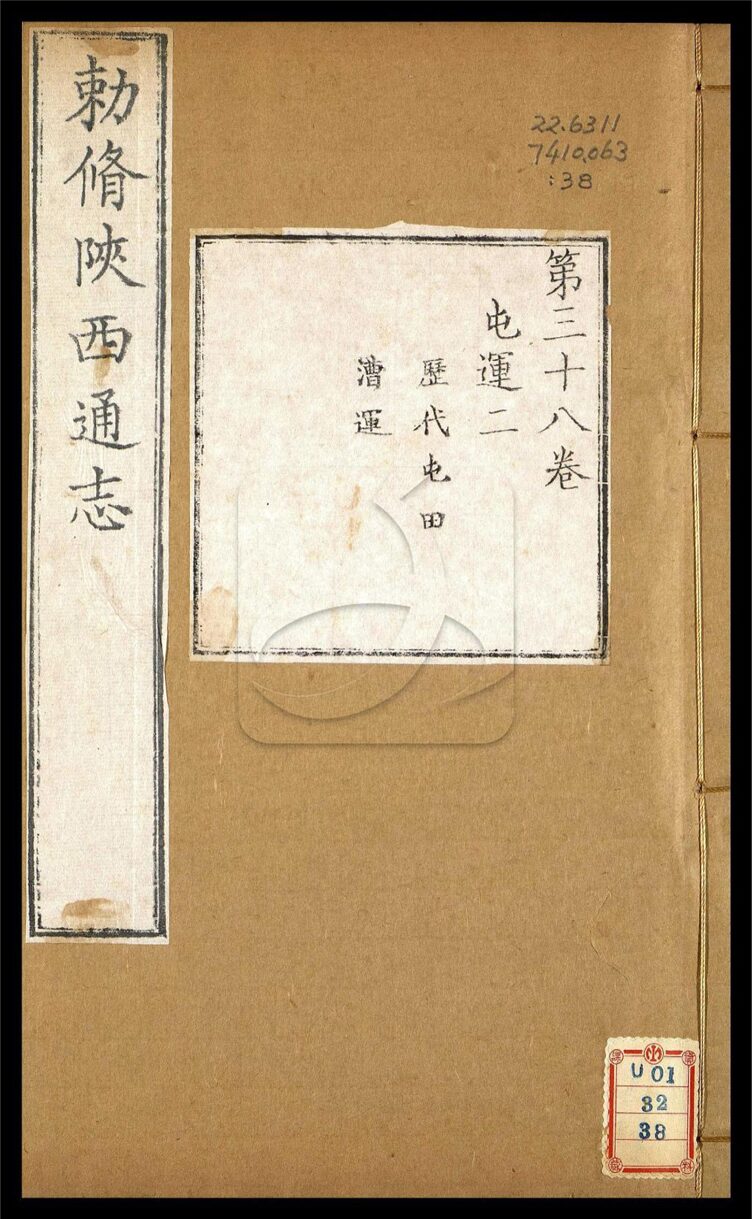 勅脩陝西通志
第三十八卷
屯運二
歷代屯田
漕運
22.6311
7410.063
:38
U 01
32
38